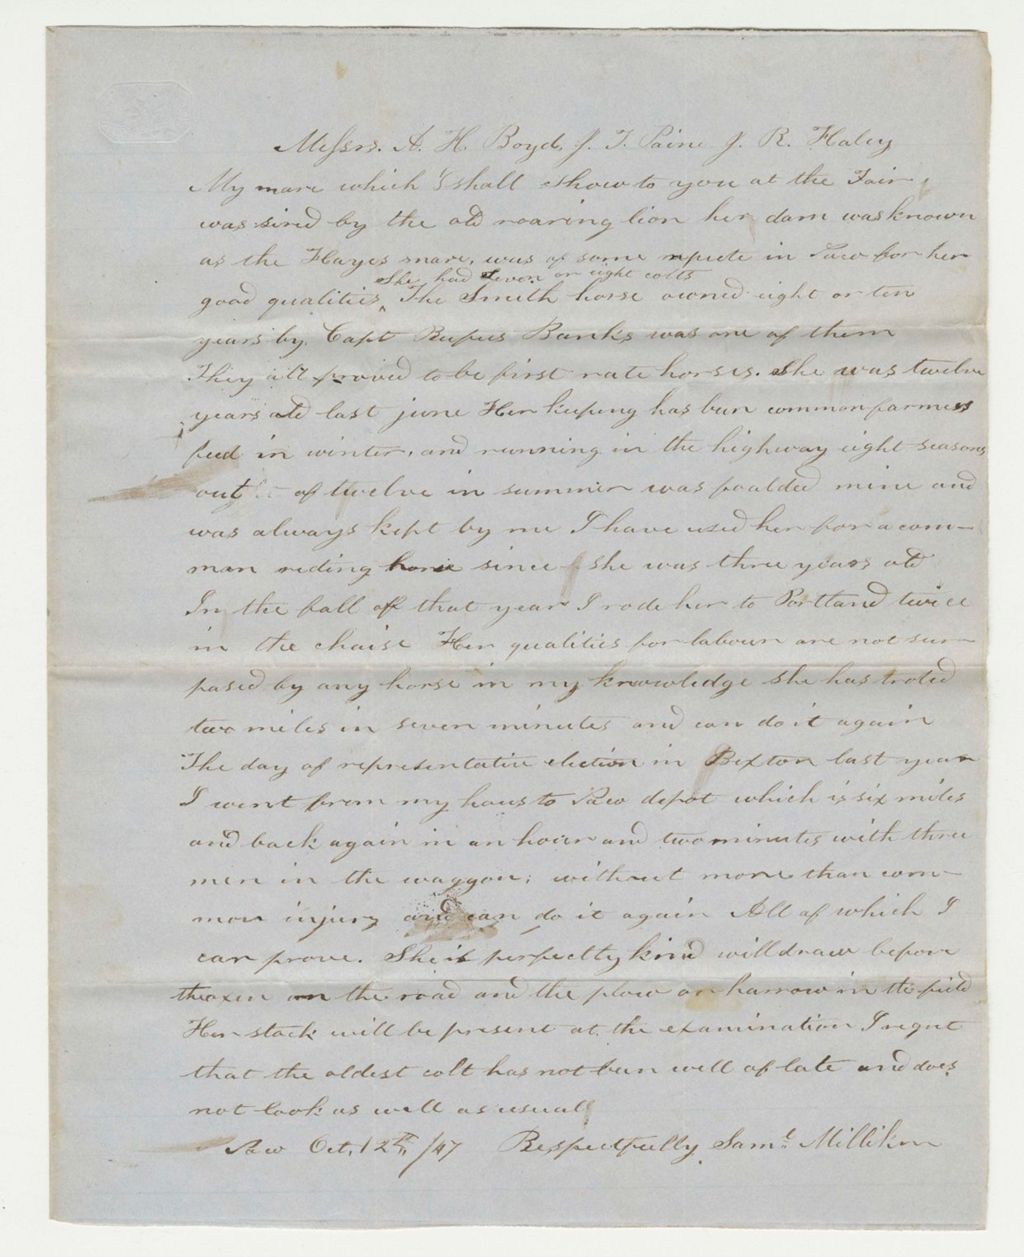 Messrs. A. H. Boyd, J. T. Paine J. R. Haley
My mare which I shall show to you at the Fair,
was sired by the old roaring lion her dam was known
as the Hayes mare, was of some repute in Saco for her
She had seven or eight colts
good qualities ^ The Smith horse owned eight or ten
years by Capt Rufus Banks was one of them
They all proved to be first rate horses. She was twelve
years old last june Her keeping has ben common farmers
feed in winter, and running in the highway eight seasons
out of twelve in summer was foalded mine and
was always kept by me I have used her for a com-
man riding horse since she was three years old
In the fall of that year I rode her to Portland twice
in the chaise Her qualities for labour are not sur-
pased by any horse in my knowledge she has troted
two miles in seven minutes and can do it again
The day of representative election in Buxton last year
I went from my hous to Saco depot which is six miles
and back again in an hour and two minutes with three
men in the waggon; without more than com-
mon injury and can do it again All of which I
can prove. She is perfectly kind will draw before
the oxen on the road and the plow or harrow in the field
Her stock will be present at the examination I regret
that the oldest colt has not ben well of late and does
not look as well as usual
Saco Oct, 12th /47 Respectfully Saml Milliken